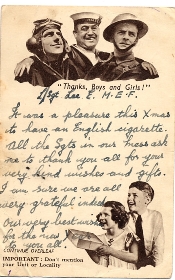 "Thanks, Boys and Girls!"
L/Sgt Lee E. M.E.F.
It was a pleasure this Xmas
to have an English cigarette.
All the Sgts in our mess ask
me to thank you all for your
very kind wishes and gifts.
I am sure we are all
very grateful
Our very best wishes
for the
to you all.
OVERSEAS
IMPORTANT: Don't mention
your Unit or Locality